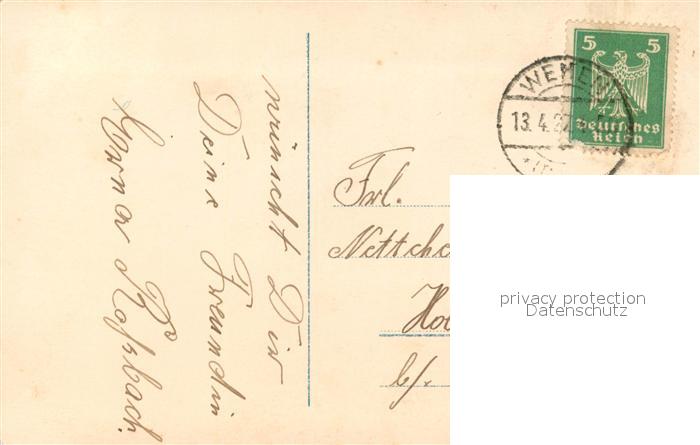 wünscht Dir
Deine Freundin
Erna Roßbach.
5 5
Deutsches
Reich
WEMEN
13.4.2
Frl.
Nettche
Ho
b/.
privacy protection
Datenschutz